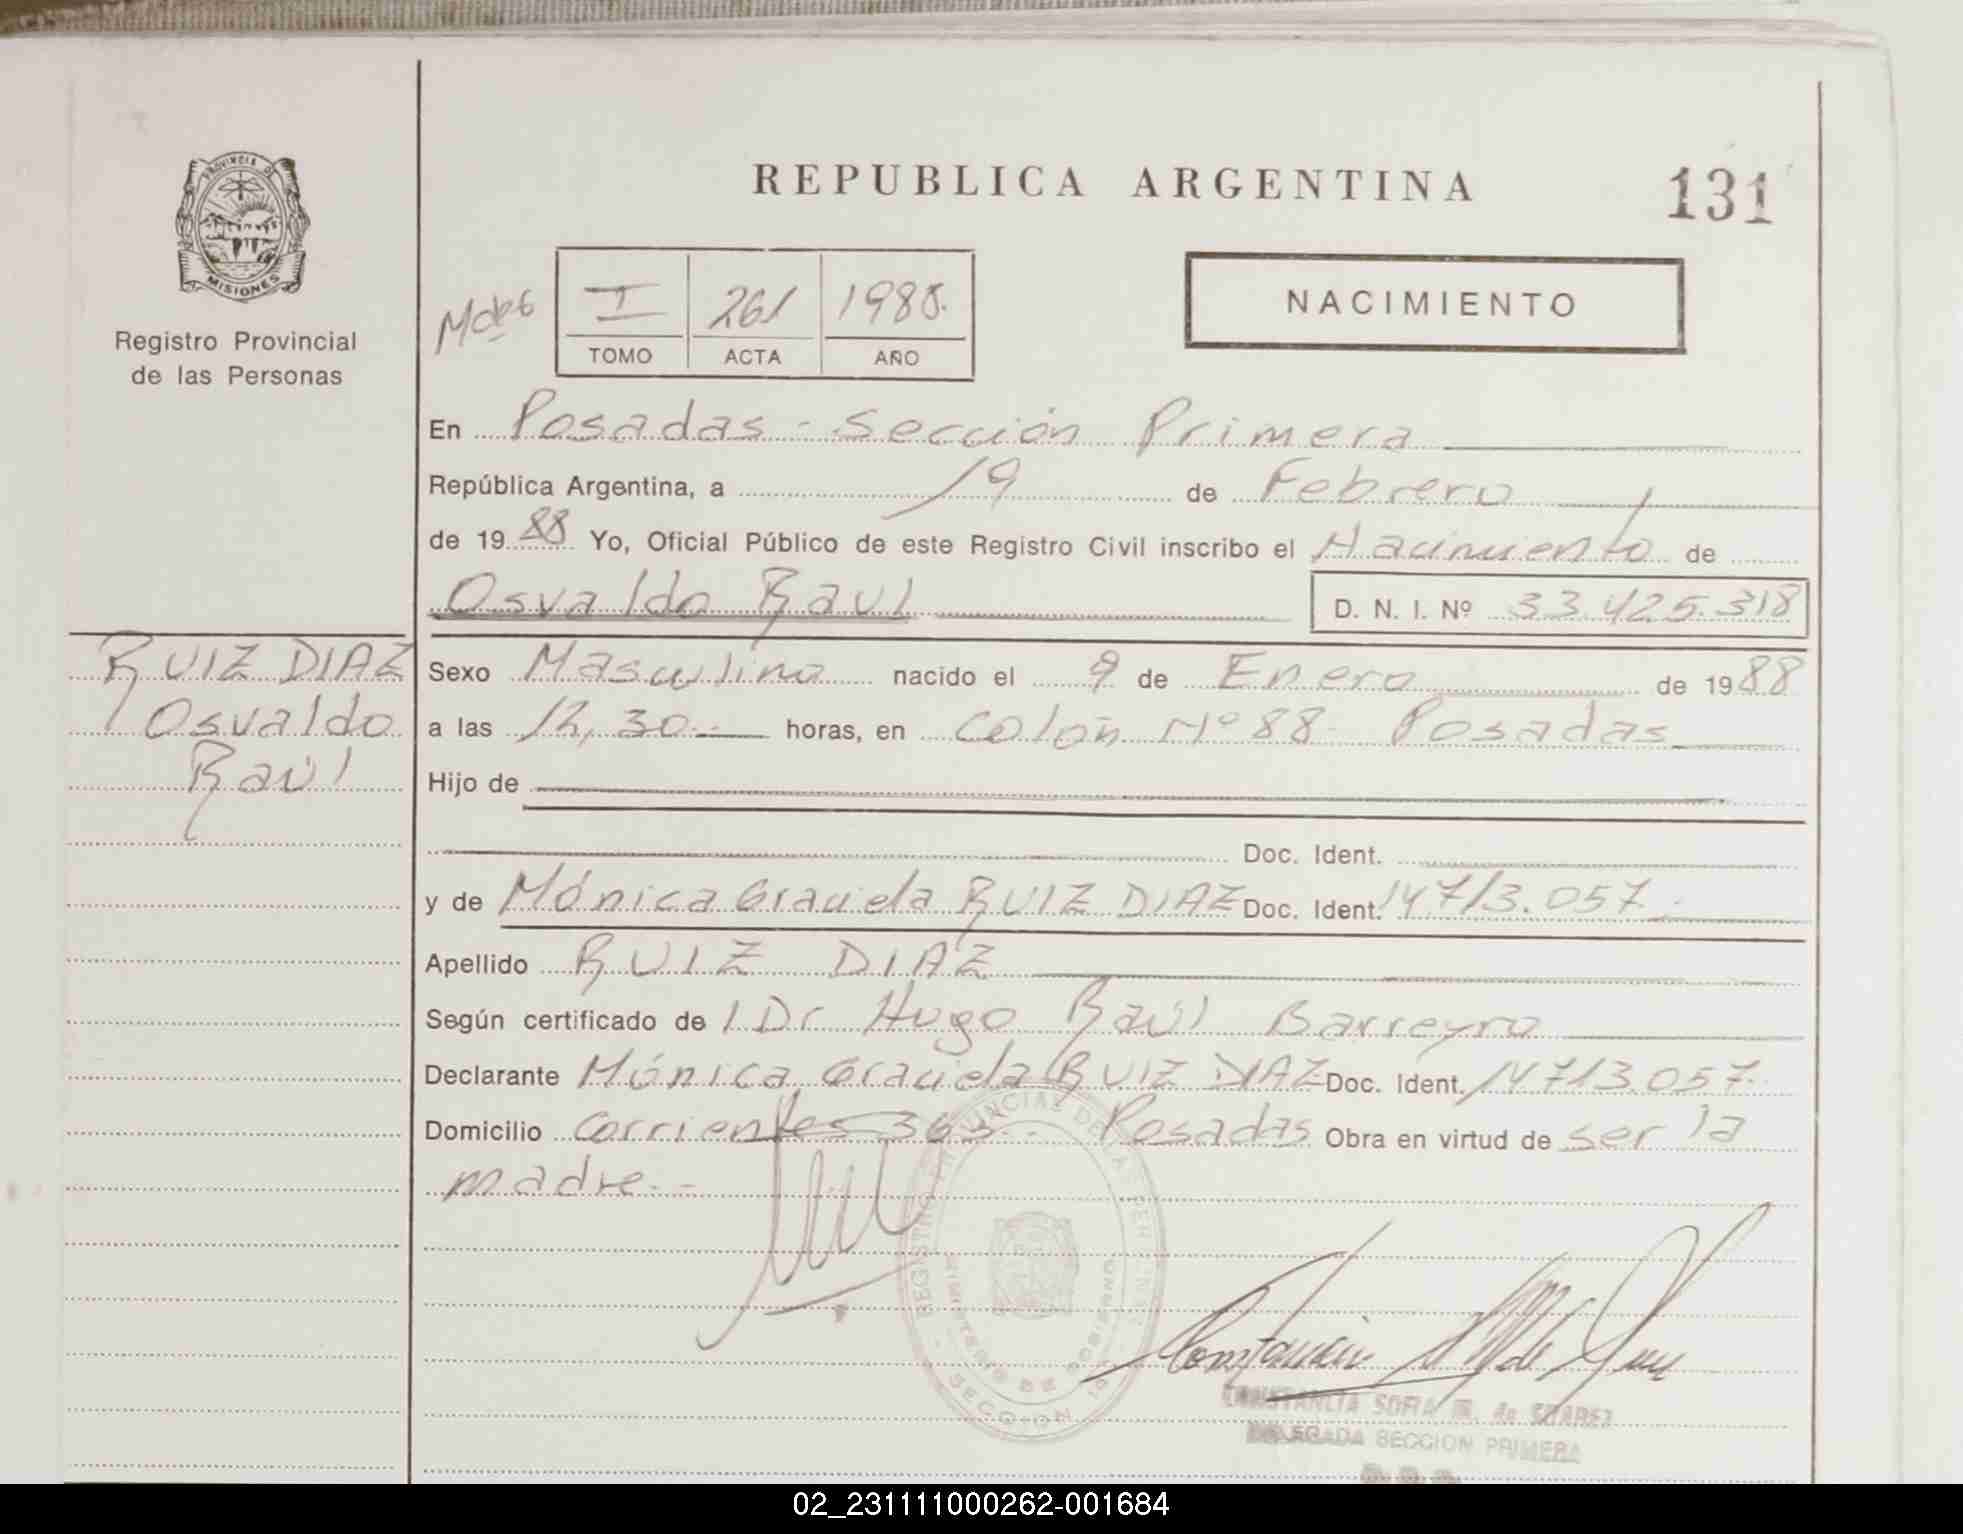 PROVINCIA DE
MISIONES
Registro Provincial
de las Personas
RUIZ DIAZ
Osvaldo
Raúl
REPUBLICA ARGENTINA
131
I 261 1988.
TOMO ACTA AÑO
NACIMIENTO
En Posadas - Sección Primera
República Argentina, a 19 de Febrero
de 1988 Yo, Oficial Público de este Registro Civil inscribo el Nacimiento de
Osvaldo Raul D. N. I. Nº 33.425.318
Sexo Masculino nacido el 9 de Enero de 1988
a las 12,30.- horas, en Colón Nº 88- Posadas
Hijo de
Doc. Ident.
y de Mónica Graciela RUIZ DIAZ Doc. Ident. 14713.057.-
Apellido RUIZ DIAZ
Según certificado de l Dr Hugo Raúl Barreyro
Declarante Mónica Graciela RUIZ DIAZ Doc. Ident. 14713.057.
Domicilio Corrientes 363- Posadas Obra en virtud de ser la
madre.--
REGISTRO PROVINCIAL DE LAS PERSONAS
MINISTERIO DE GOBIERNO
SECCION 1ª
CONSTANCIA SOFIA M. de SUAREZ
DELEGADA SECCION PRIMERA
02_231111000262-001684